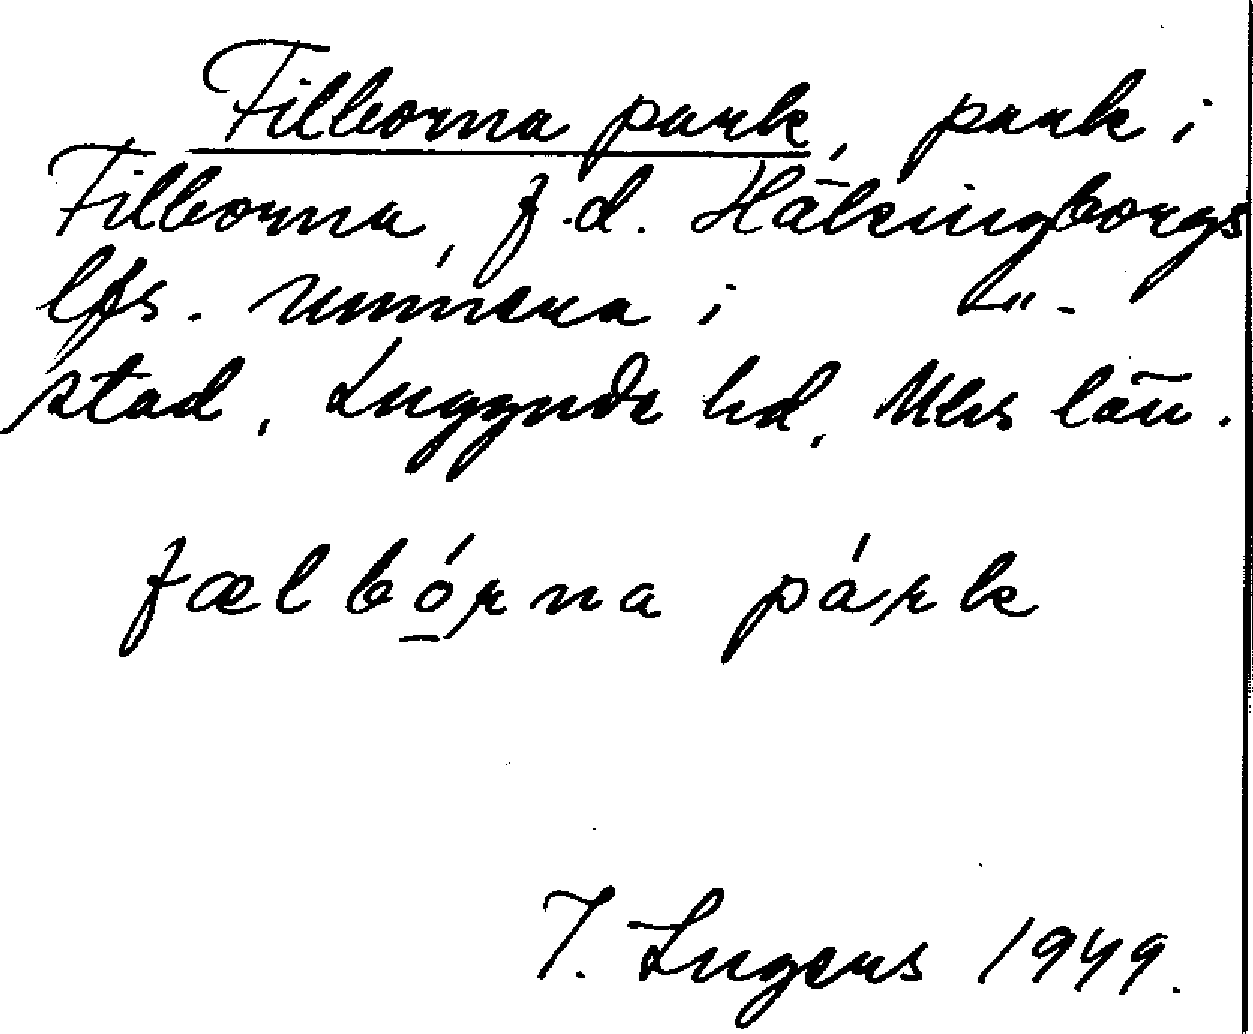 Filborna park, park i
Filborna, f.d. Hälsingborgs
lfs. numera i —"—
stad, Luggude hd, Mlhs län.
fælbórna párk
I. Ingers 1949.